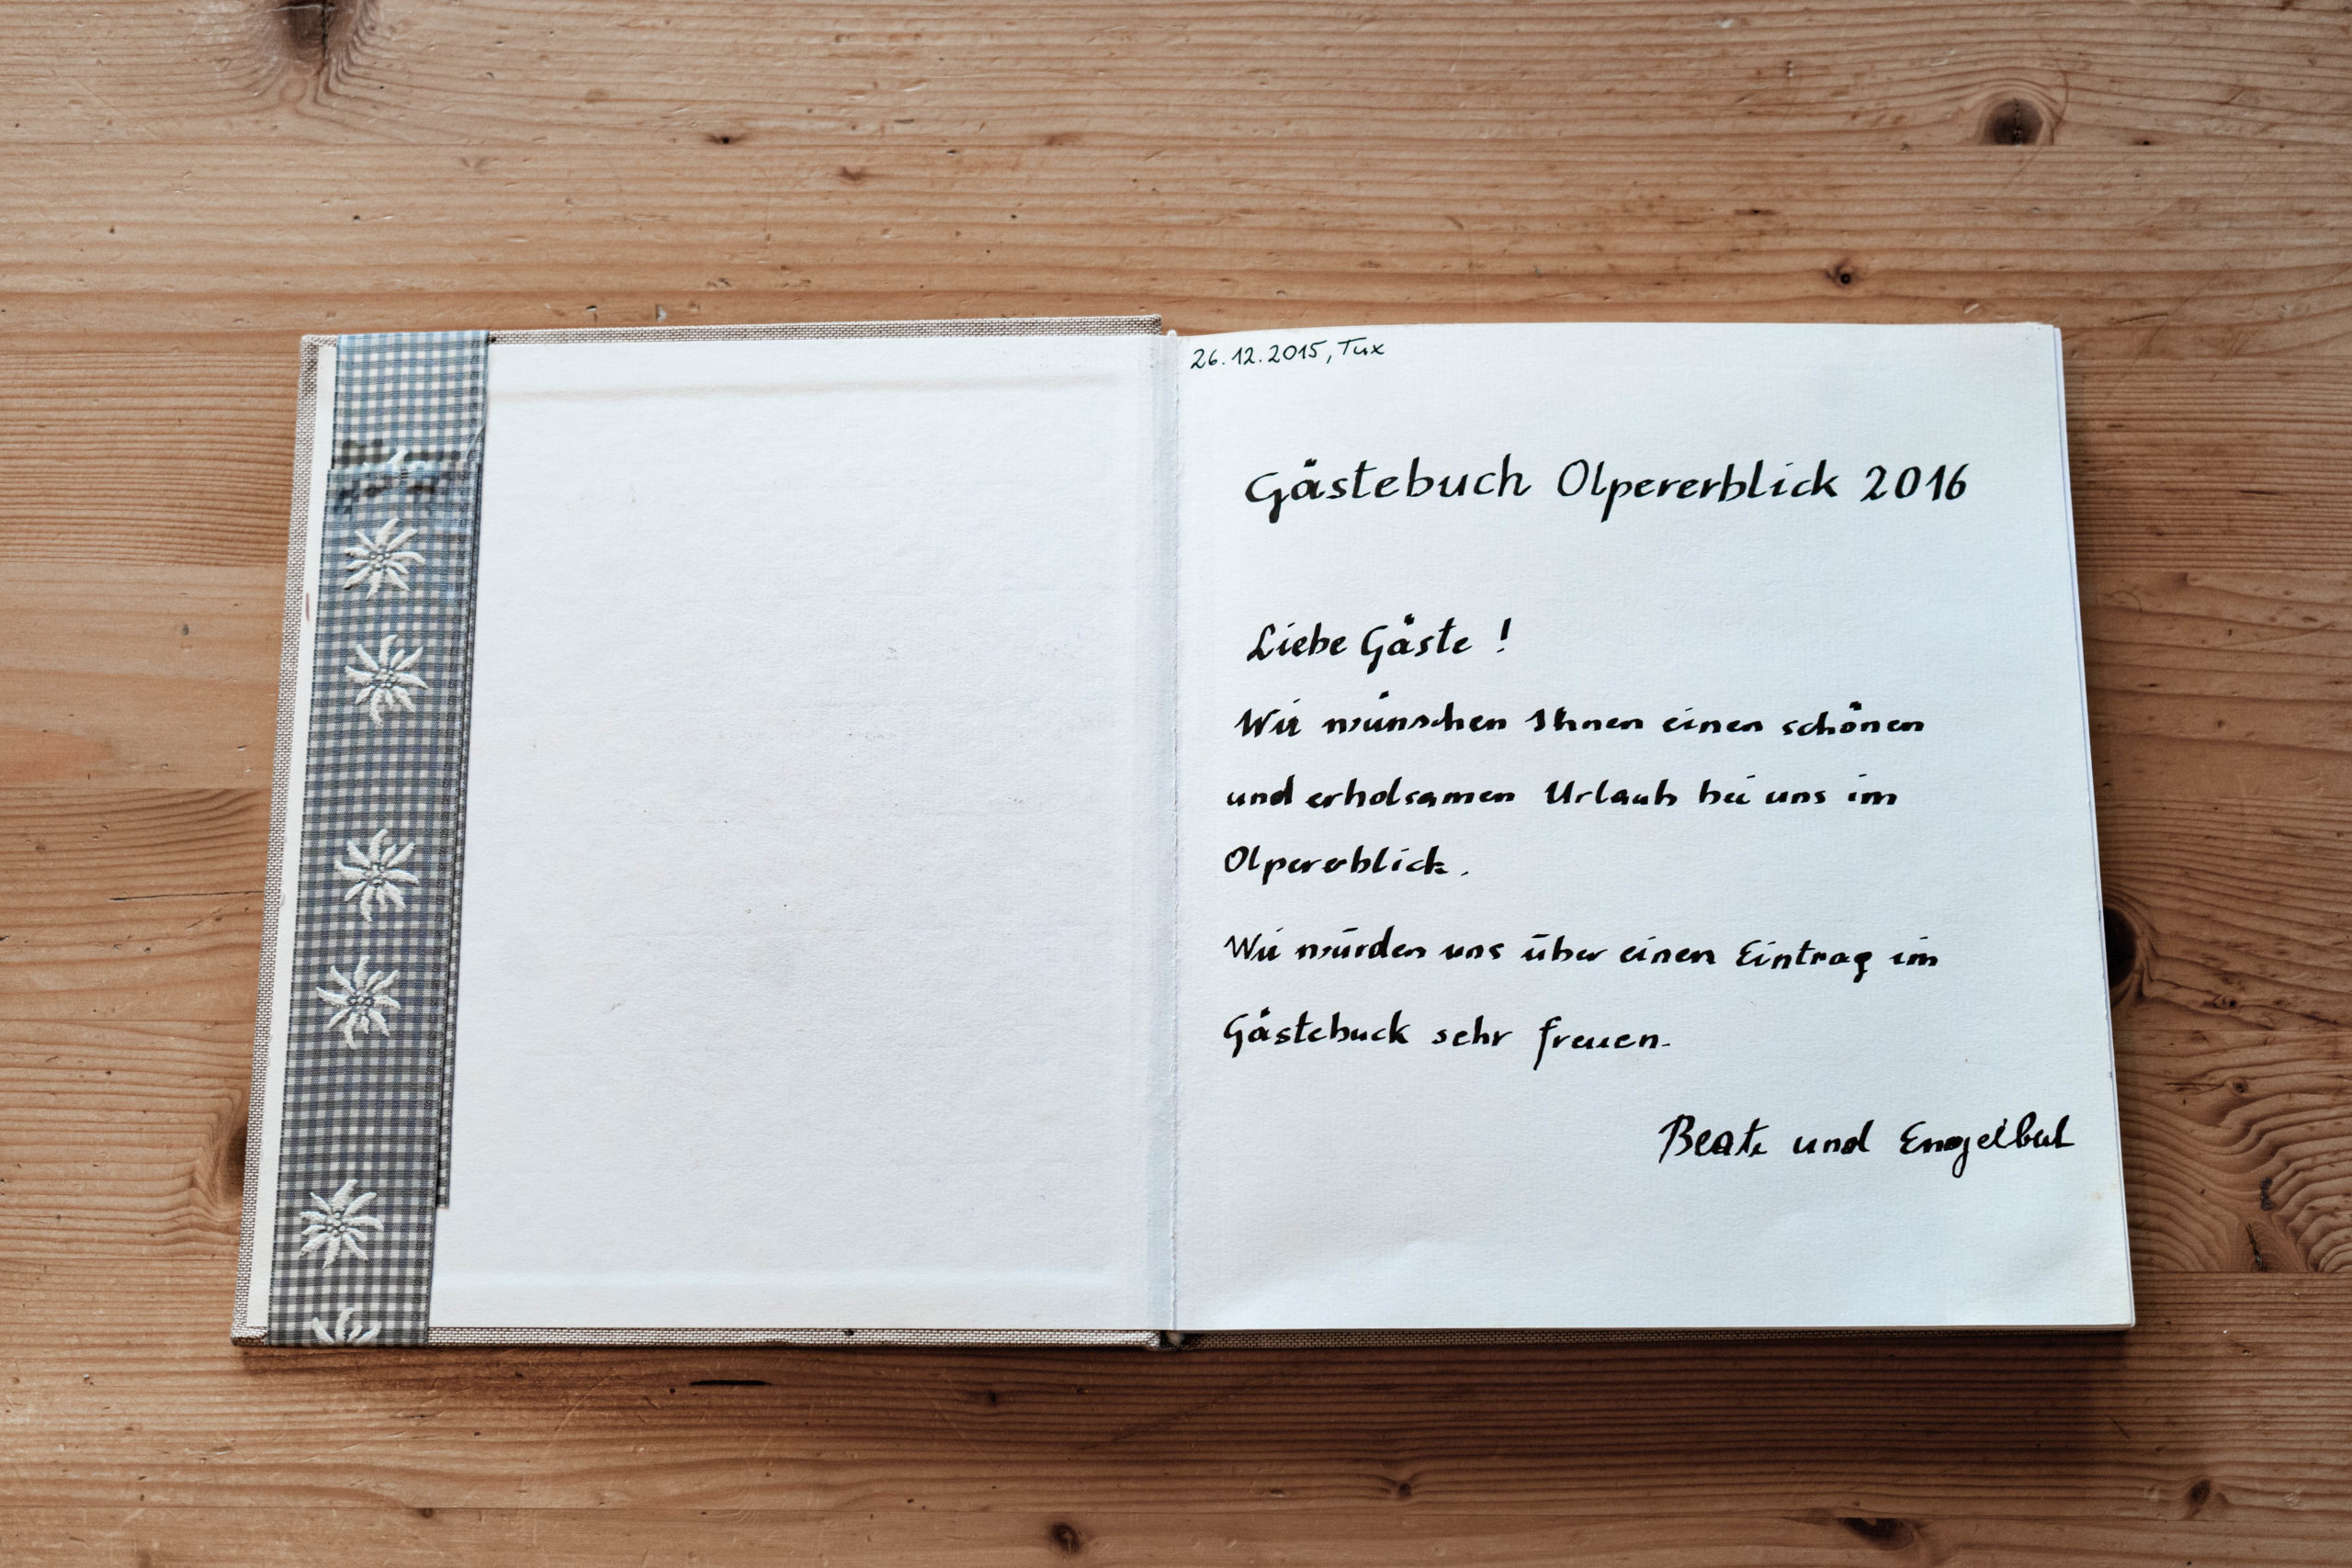 26.12.2015, Tux
Gästebuch Olpererblick 2016
Liebe Gäste !
Wir wünschen Ihnen einen schönen
und erholsamen Urlaub bei uns im
Olpererblick.
Wir würden uns über einen Eintrag im
Gästebuch sehr freuen.
Beate und Engelbert